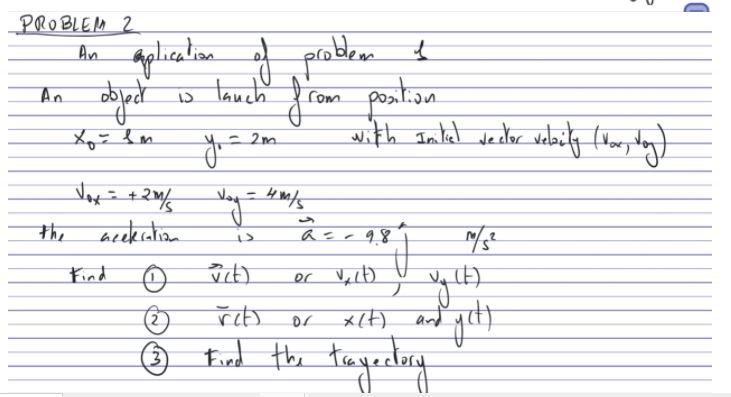 PROBLEM 2
An aplication of problem 1
An object is lauch from position
x₀ = 1 m y₀ = 2m with Initial vector velocity (v₀ₓ, v₀y)
v₀ₓ = +2 m/s v₀y = 4 m/s
the acceleration is a⃗ = - 9.8 ĵ m/s²
Find ① v⃗(t) or vₓ(t), vy(t)
② r⃗(t) or x(t) and y(t)
③ Find the trayectory